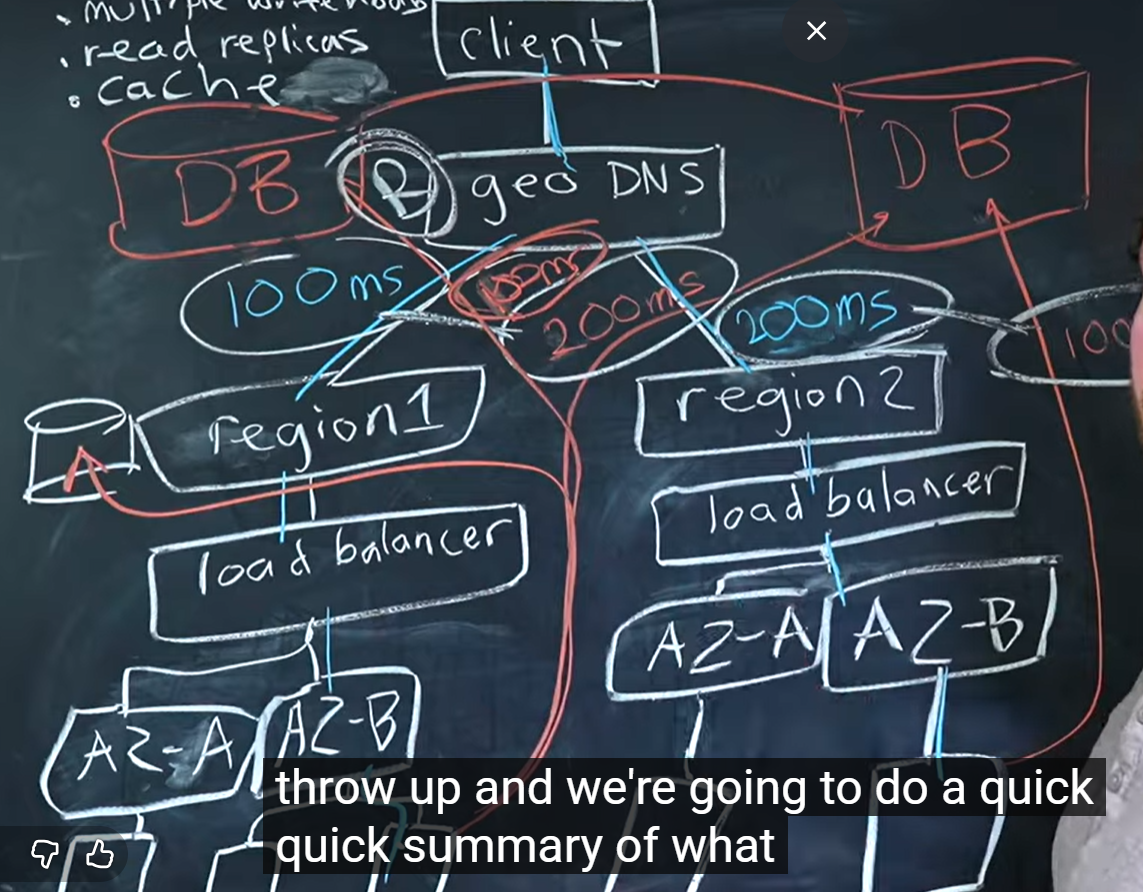 • multiple write nodes
• read replicas
• cache
client
DB
R
geo DNS
DB
100ms
100ms
200ms
200ms
100
region1
region2
A
load balancer
load balancer
AZ-A
AZ-B
AZ-A
AZ-B
throw up and we're going to do a quick
quick summary of what